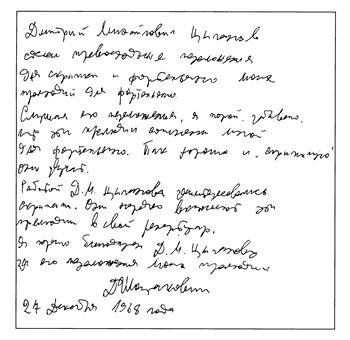 Дмитрий Михайлович Цыганов
сделал превосходные переложения
для скрипки и фортепиано моих
прелюдий для фортепиано.
Слушая его переложения, я порой забываю,
что эти прелюдии сочинены мной
для фортепиано. Так хорошо и „скрипично“
они звучат.
Работой Д. М. Цыганова заинтересовались
скрипачи. Они нередко включают эти
прелюдии в свой репертуар.
Я горячо благодарен Д. М. Цыганову
за его переложения моих прелюдий.
Д Шостакович
24 декабря 1968 года